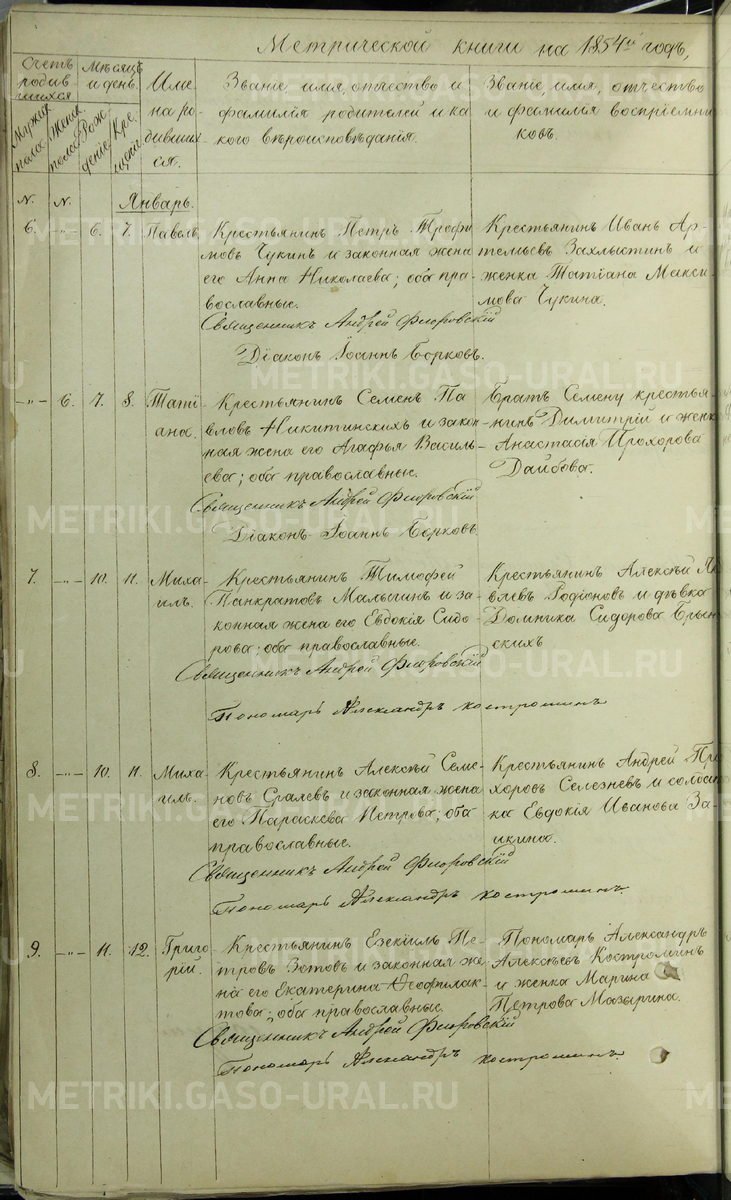 Метрической книги на 1854й годъ,
Счетъ родив шихся
Мужска пола
Женска пола
Мѣсяцъ и день
Рож деніе
Кре щеніе
Име на ро дивших ся.
Званіе, имя, отчество и
фамилія родителей и ка
кого вѣроисповѣданія.
Званіе, имя, отчество
и фамилія воспріемни
ковъ.
N. N. Январь.
6. -"- 6. 7. Павелъ
Крестьянинъ Петръ Трофи
мовъ Чукинъ и законная жена
его Анна Николаева; оба пра-
вославные.
Священникъ Андрей Флоровскій
Діаконъ Іоаннъ Борковъ.
Крестьянинъ Иванъ Ар-
тельевъ Захлыстинъ и
женка Татіана Макси
мова Чукина.
-"- 6. 7. 8. Таті-
ана.
Крестьянинъ Семенъ Па
вловъ Никитинскихъ и закон
ная жена его Агафья Василь
ева; оба православные.
Священникъ Андрей Флоровскій
Діаконъ Іоаннъ Борковъ.
Братъ Семену крестья-
нинъ Димитрій и женка
Анастасія Прохорова
Дайбова.
7. -"- 10. 11. Миха-
илъ.
Крестьянинъ Тимофей
Панкратовъ Малыгинъ и за
конная жена его Евдокія Сидо-
рова; оба православные.
Священникъ Андрей Флоровскій
Пономарь Александръ Костроминъ
Крестьянинъ Алексѣй Яко
влевъ Родіоновъ и дѣвка
Домника Сидорова
скихъ
8. -"- 10. 11. Миха
илъ.
Крестьянинъ Алексѣй Семе
новъ Сралевъ и законная жена
его Параскева Петрова; оба
православные.
Священникъ Андрей Флоровскій
Пономарь Александръ Костроминъ.
Крестьянинъ Андрей Про
хоровъ Селезневъ и солдат
ка Евдокія Иванова За-
икина.
9. -"- 11. 12. Григо
рій.
Крестьянинъ Езекіиль Пе-
тровъ Зотовъ и законная же
на его Екатерина Ѳеофилак-
това; оба православные.
Священникъ Андрей Флоровскій
Пономарь Александръ Костроминъ.
Пономарь Александръ
Алексѣевъ Костроминъ
и женка Марина
Петрова Мазырина.
METRIKI.GASO-URAL.RU
METRIKI.GASO-URAL.RU
METRIKI.GASO-URAL.RU
METRIKI.GASO-URAL.RU
METRIKI.GASO-URAL.RU
METRIKI.GASO-URAL.RU
METRIKI.GASO-URAL.RU
METRIKI.GASO-URAL.RU